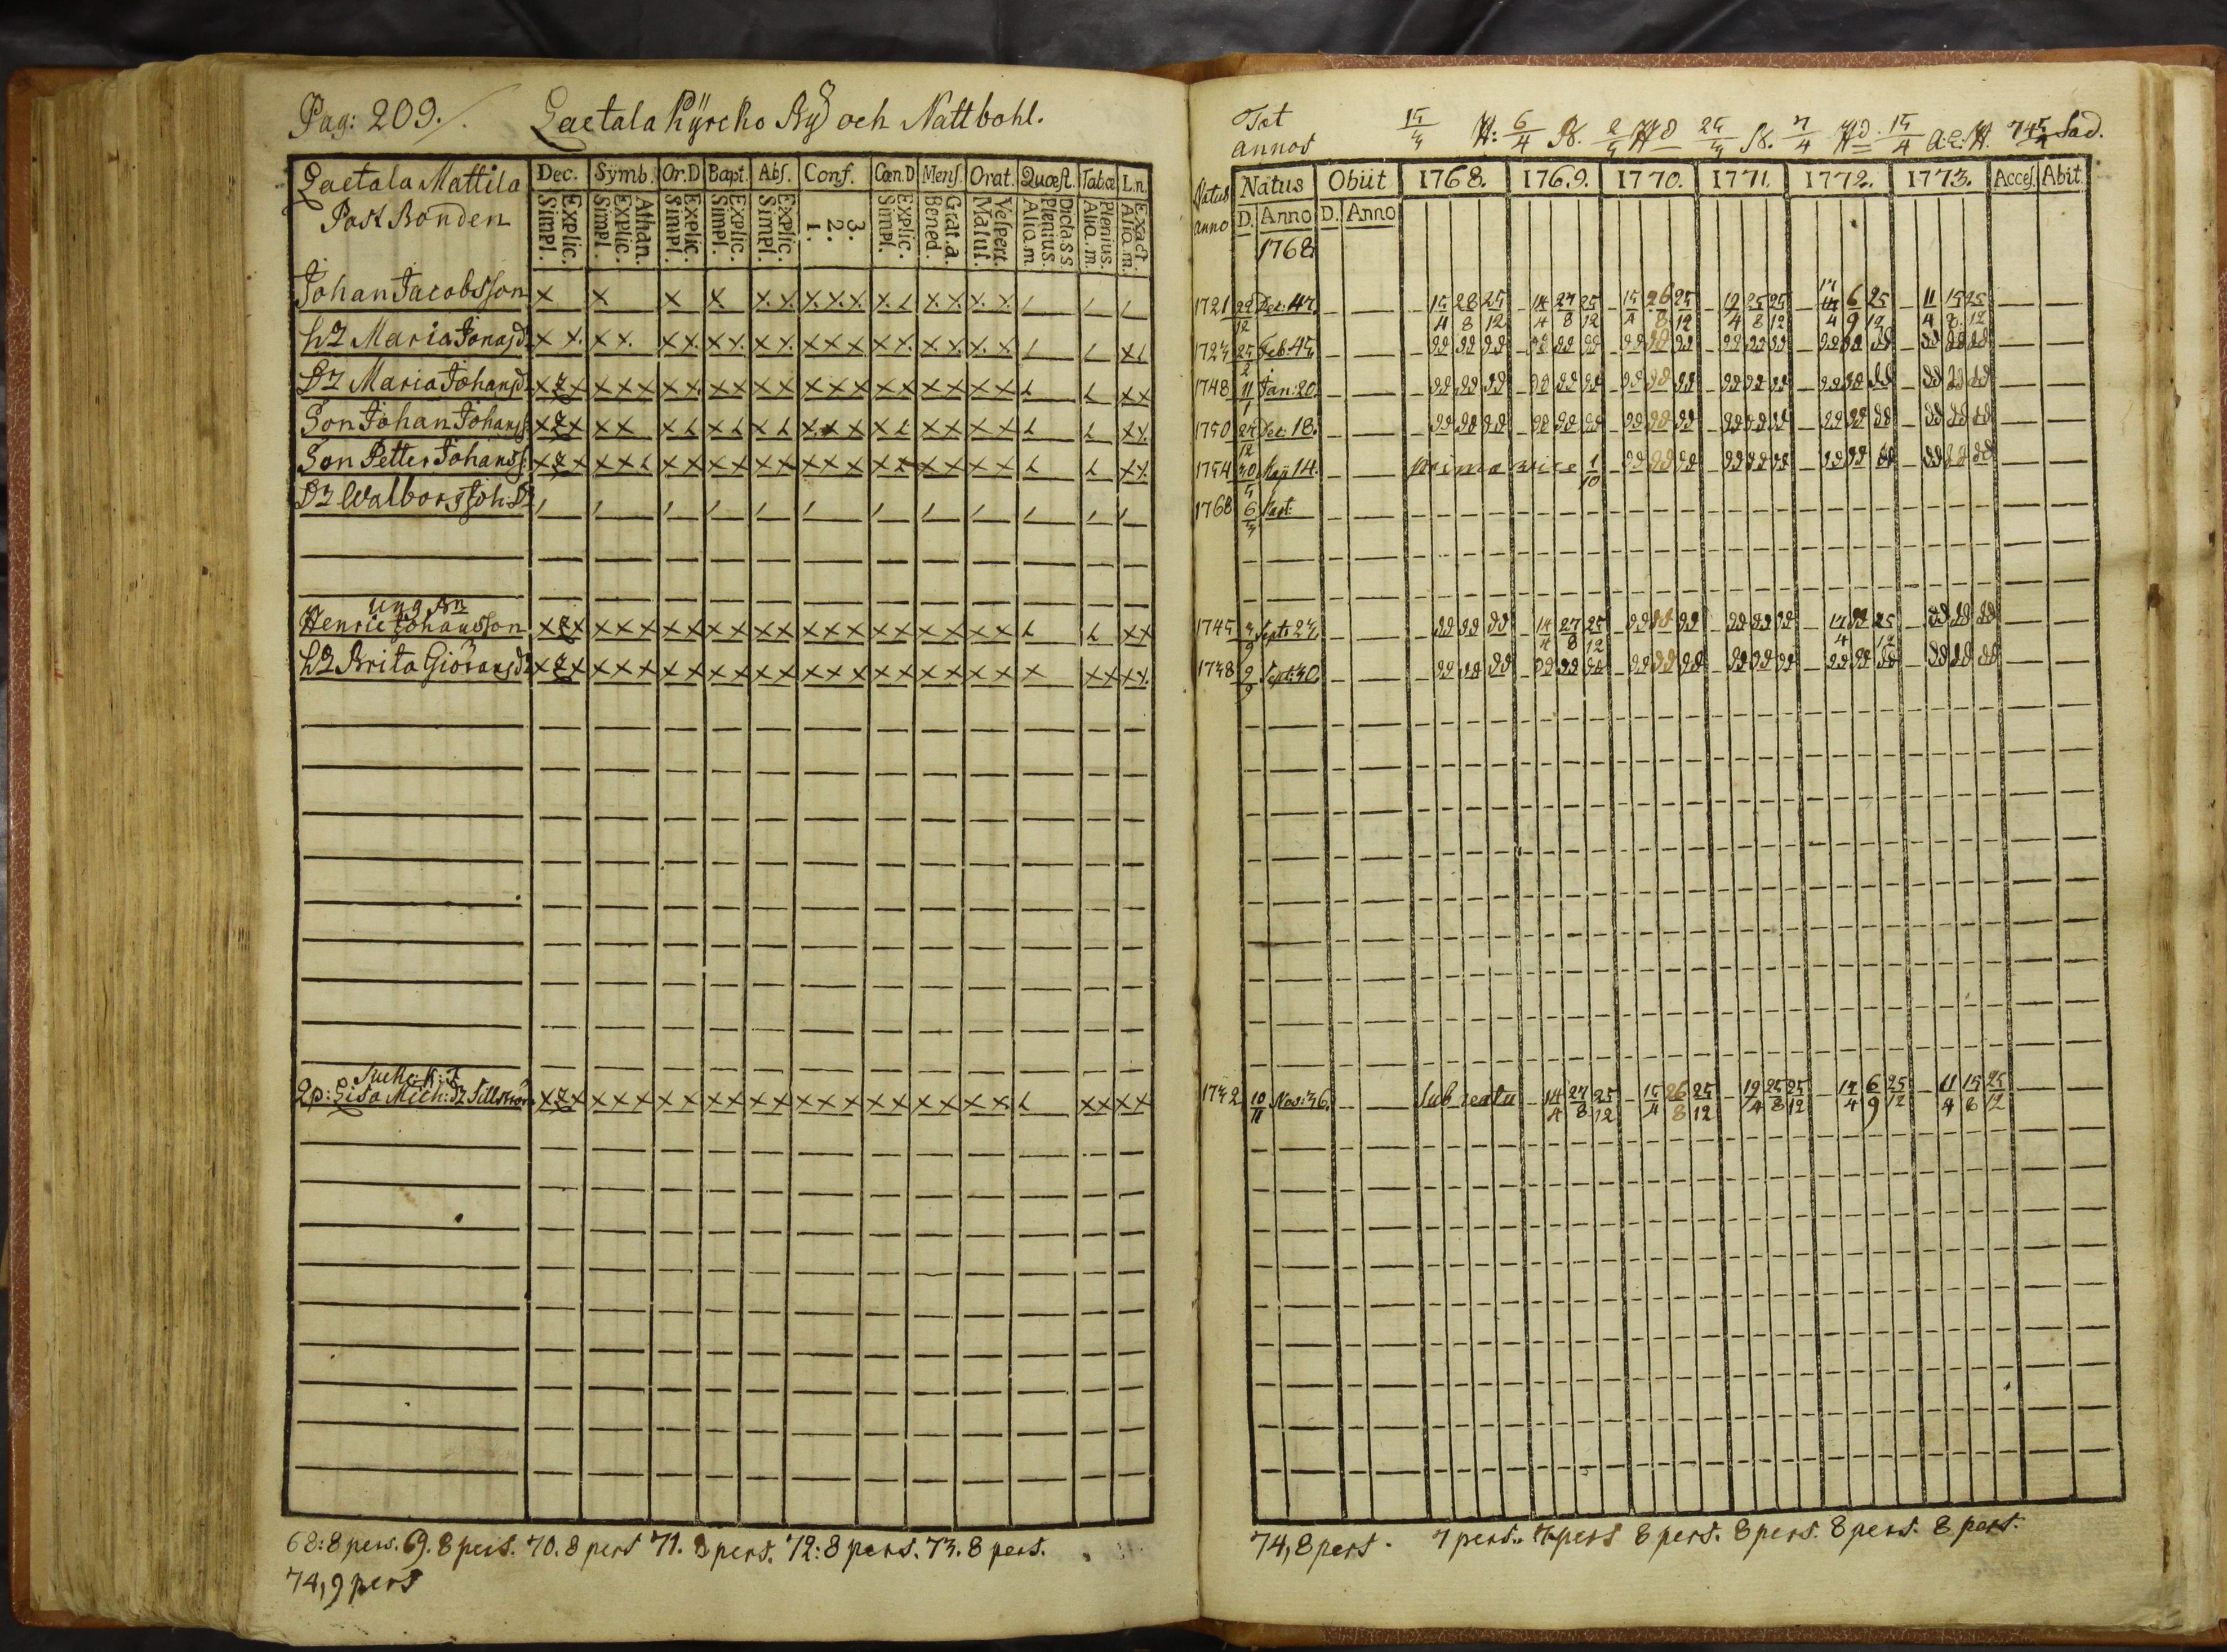 Pag: 209. Laetala Kÿrcko Bÿ och Nattbohl.
Laetala Mattila Dec. Sÿmb. Or.D Bapt. Abs. Conf. Cœn.D Mens. Orat. Quœst. Tab.œ L.n.
Post Bonden Simpl. Explic. Simpl. Explic. Athan. Simpl. Explic. Simpl. Explic. Simpl. Explic. 1. 2. 3. Simpl. Explic. Bened. Grat.a. Matut. Vespert. Aliq.m. Plenius. Dicta S.S. Aliq.m. Plenius. Aliq.m. Exact.
Johan Jacobsson x x x x x.x. x.x.x x. x.x x. x.
h? Maria Jonasd. x x. x x. x x. x x. x x. x x x x x. x. x. x. x
D? Maria Johansd. x x x x x x x x. x x x x x x x x x x x x x x x
Son Johan Johanss. x x x x x x x x x x x x x x x x
Son Petter Johanss. x x x x x x x x x x x x x x x x x x x x
D? Walborg Joh: D?
ung Bn
Henric Johansson x x x x x x x x x x x x x x x x x x x x x x x x
h? Brita Giöransd? x x x x x x x x x x x x x x x x x x x x x x x x x x
Lisa Mich: D?
68: 8 pers. 69. 8 pers. 70. 8 pers 71. 8 pers. 72: 8 pers. 73. 8 pers.
74, 9 pers
Tot
annos
Natus
anno
Natus Obiit 1768. 1769. 1770. 1771. 1772. 1773. Acces. Abit.
D. Anno D. Anno
1768
1721 22/12 Dec: 47. 15/4 28/8 25/12 14/4 27/8 25/12 15/4 26/8 25/12 19/4 25/8 25/12 6/9 25/12 11/4 15/8 25/12
1723 25/2 Feb. 45 dd dd dd dd dd dd dd dd dd dd dd dd dd dd dd dd dd dd
1748 11/1 Jan. 20. dd dd dd dd dd dd dd dd dd dd dd dd dd dd dd dd dd dd
1750 25/12 Dec. 18. dd dd dd dd dd dd dd dd dd dd dd dd dd dd dd dd dd dd
1754 30/5 Maÿ 14. prima vice 1/10 dd dd dd dd dd dd dd dd dd dd dd dd
1768 6/3
1745 3/9 Sept: 23. dd dd dd 14/4 27/8 25/12 dd dd dd dd dd dd 14/4 dd 25/12 dd dd dd
1738 9/9 Sept: 30. dd dd dd dd dd dd dd dd dd dd dd dd dd dd dd dd dd dd
1732 10/11 Nov: 36. sub reatu 14/4 27/8 25/12 15/4 26/8 25/12 19/4 25/8 25/12 14/4 6/9 25/12 11/4 15/8 25/12
74, 8 pers. 7 pers. 7 pers 8 pers. 8 pers. 8 pers. 8 pers.